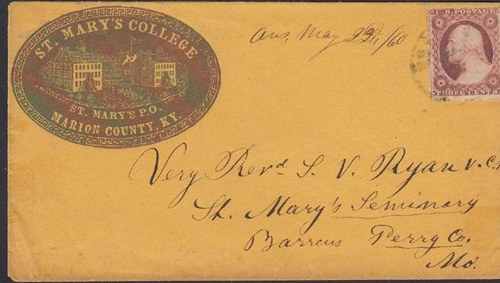 ST. MARY'S COLLEGE
ST. MARY'S P.O.
MARION COUNTY, KY.
Ans, May 22d/60
U.S. POSTAGE
THREE CENTS
Very Revd S. V. Ryan V. C.M
St. Mary's Seminary
Barrens Perry Co.
Mo.